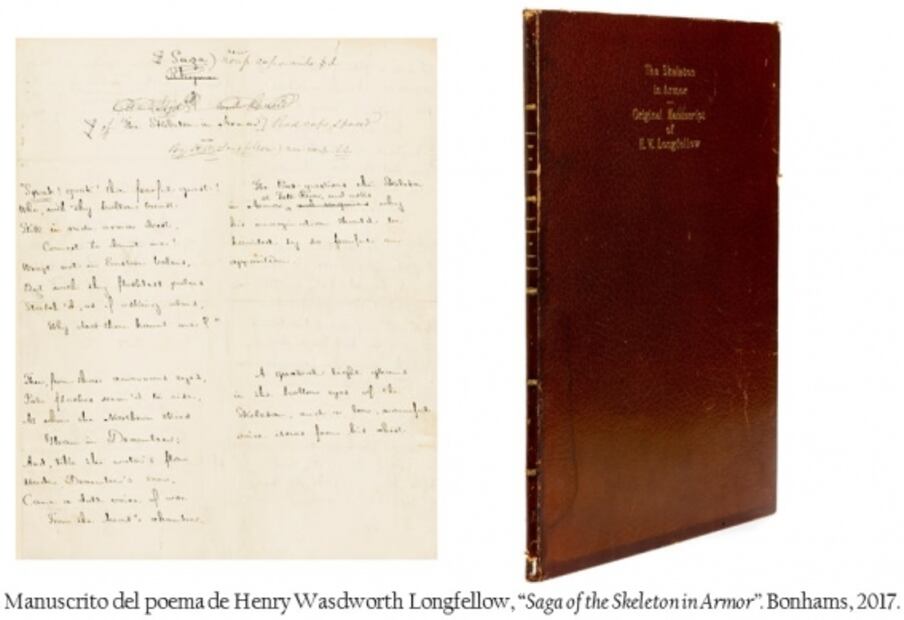 Saga
of the Skeleton in Armor
"Speak! speak! thou fearful guest!
Who, with thy hollow breast
Still in rude armor drest,
Comest to haunt me!
Wrapt not in Eastern balms,
But with thy fleshless palms
Stretch'd, as if asking alms,
Why dost thou haunt me?"
Then, from those cavernous eyes,
Pale flashes seem'd to rise,
As when the Northern skies
Gleam in December;
And, like the water's flow
Under December's snow,
Came a dull voice of woe
From the heart's chamber.
The Poet questions the Skeleton
at Fall River, and asks
in Armor, why
his imagination should be
haunted by so fearful an
apparition.
A light gleams
in the hollow eyes of the
Skeleton, and a low, mournful
voice comes from his chest.
The Skeleton
in Armor
Original Manuscript
of
H. W. Longfellow
Manuscrito del poema de Henry Wasdworth Longfellow, “Saga of the Skeleton in Armor”. Bonhams, 2017.